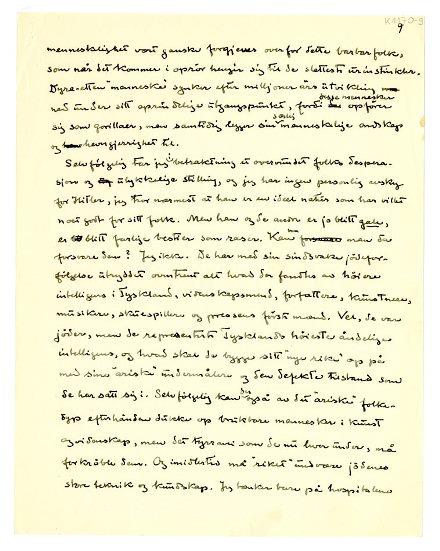 K1170-9
9
menneskelighet vort ganske forgjeves overfor dette barbarfolk,
som når det kommer i oprör hengir sig til de sletteste urinstinkter.
Dyre-atten mennesket synker efter millioner års utvikling
ned under sitt oprindelige utgangspunkt, fordi disse mennesker opförer
sig som gorillaer, men samtidig legger sin særlig menneskelige ondskap
og hevngjerrighet til.
Selvfölgelig tar jeg i betraktning et overvundet folks despera-
sjon og ulykkelige stilling, og jeg har ingen personlig avsky
for Hitler, jeg tror nærmest at han er en ideel natur som har villet
noet godt for sitt folk. Men han og de andre er jo blitt gale,
er blitt farlige bestier som raser. Kan man da
forsvare dem? Jeg ikke. De har med sin sindssvake jödefor-
fölgelse utryddet omtrent alt hvad der fandtes av höiere
intelligens i Tyskland, videnskapsmænd, forfattere, kunstnere,
musikere, skuespillere og pressens förste mænd. Vel, de var
jöder, men de representerte Tysklands höieste åndelige
intelligens, og hvad skal de bygge sitt "nye rike" op på
med sine "ariske" undermålere og den defekte tilstand som
de har satt sig i. Selvfölgelig kan der også av det "ariske" folke-
dyp efterhånden dukke op brukbare mennesker i kunst
og videnskap, men det tyranni som de nu lever under, må
forkröble dem. Og imidlertid må "riket" undvære jödenes
store teknik og kundskap. Jeg tænker bare på hospitalene